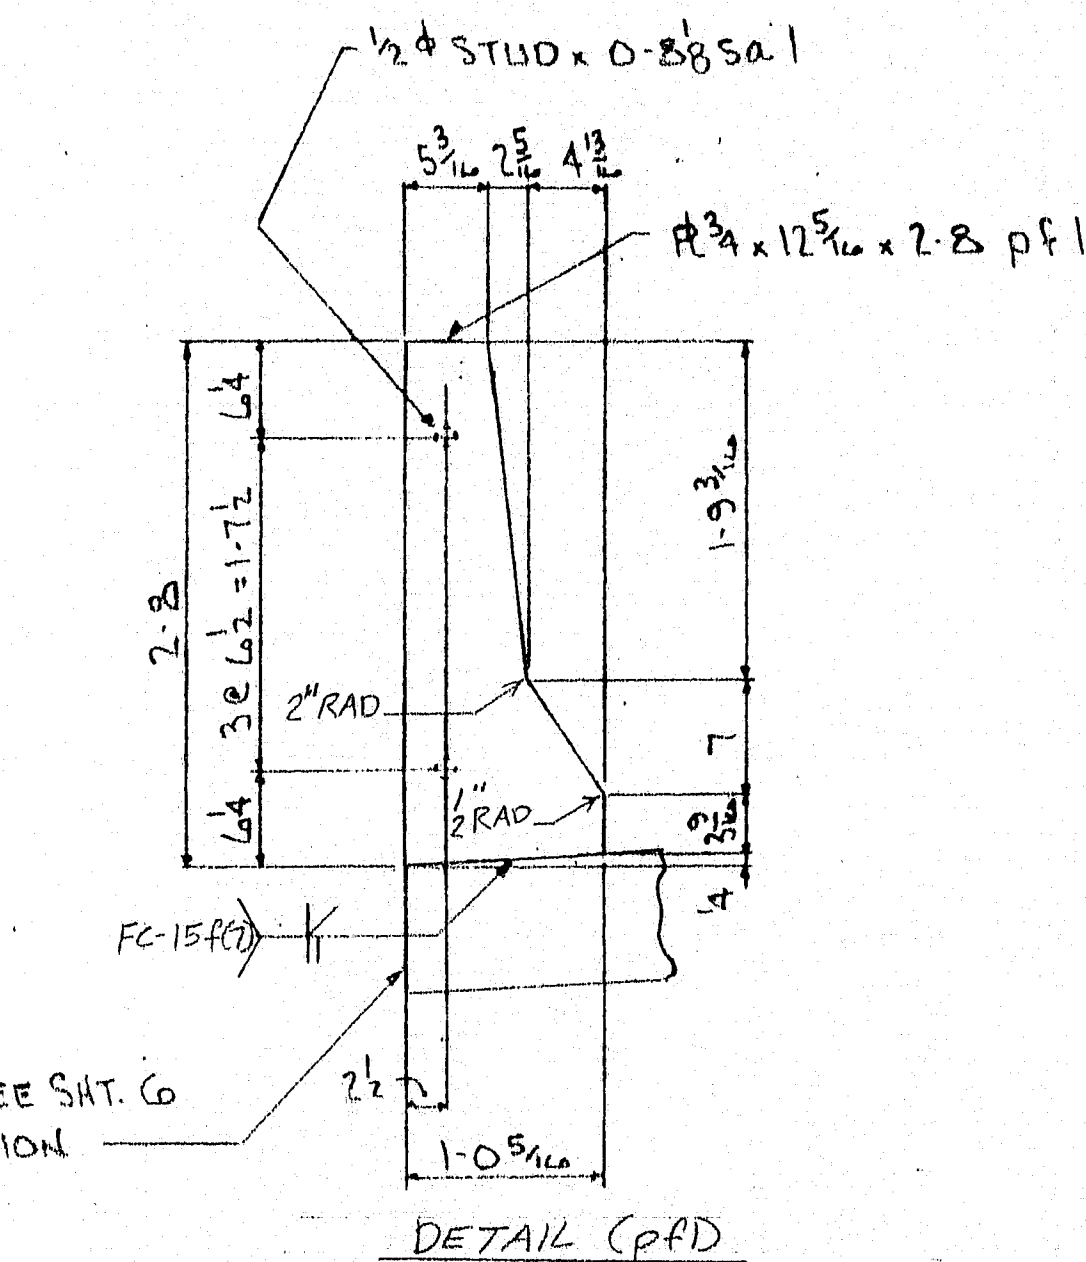 1/2 φ STUD x 0-8 1/8 sa1
5 3/16 2 5/16 4 13/16
PL 3/4 x 12 5/16 x 2-8 pf1
6 1/4
3 @ 6 1/2 = 1-7 1/2
6 1/4
2-8
1-9 3/16
7
3 9/16
1/4
2" RAD
1/2" RAD
FC-15f(7)
EE SHT. 6
ION
2 1/2
1-0 5/16
DETAIL (pf1)